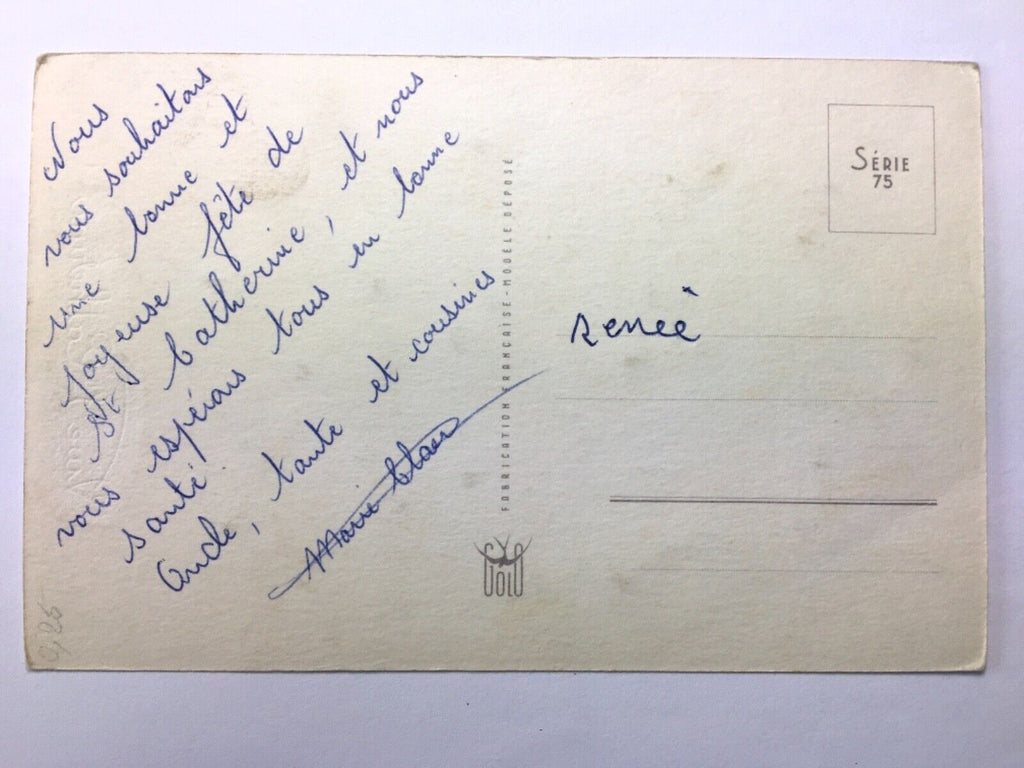 Nous
vous souhaitons
une bonne et
Joyeuse fête de
St Catherine, et nous
vous espérons tous en bonne
santé
Oncle, tante et cousines
Marie
FABRICATION FRANÇAISE - MODÈLE DÉPOSÉ
SÉRIE
75
Renée
0,25